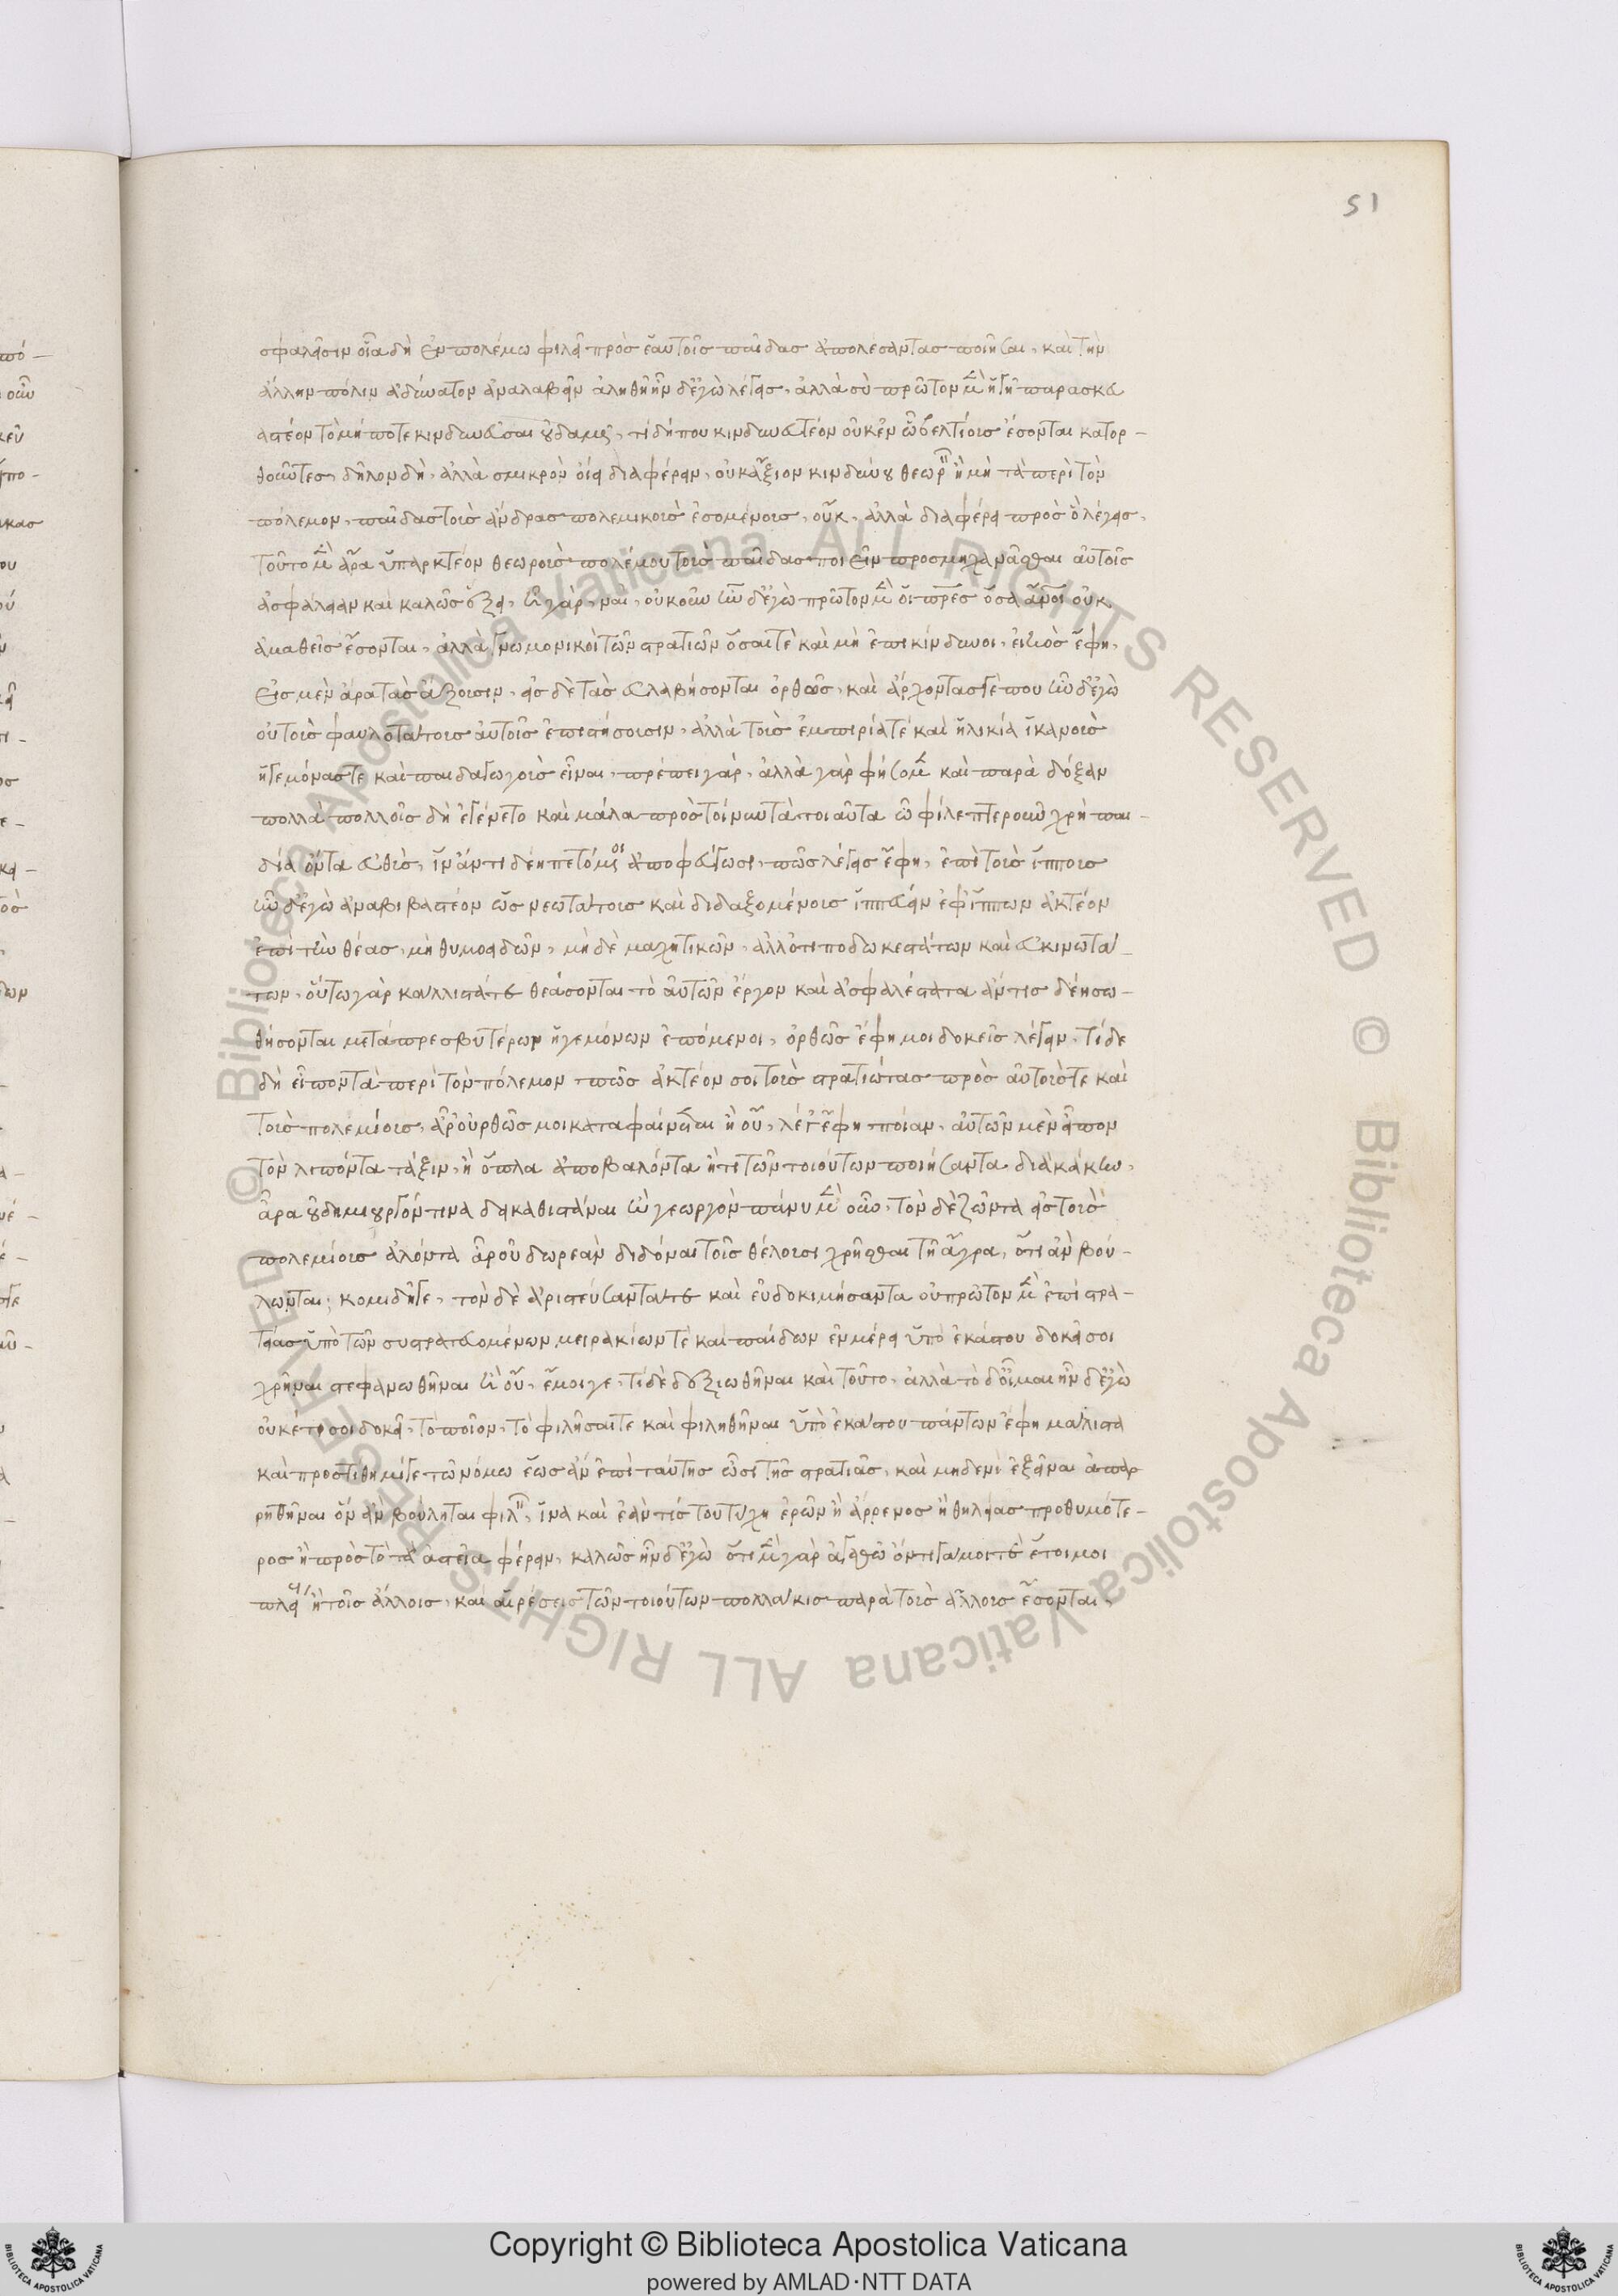 51
σφαλεῖσιν οἷα δὴ ἐν πολέμω φιλεῖ πρὸς ἑαυτοῖς παῖδας ἀπολέσαντας ποιῆσαι, καὶ τὴν
ἄλλην πόλιν ἀδύνατον ἀναλαβεῖν ἀληθῆ ἦν δ' ἐγὼ λέγεις, ἀλλὰ σὺ πρῶτον μὲν ἡγῆ παρασκευ
αστέον τὸ μή ποτε κινδυνεῦσαι οὐδαμῶς, τί δή που κινδυνευτέον οὐκ ἐν ᾧ βελτίους ἔσονται κατορ-
θοῦντες, δῆλον δή, ἀλλὰ σμικρὸν οἴει διαφέρειν, οὐκ ἄξιον κινδύνου θεωρεῖν ἢ μὴ τὰ περὶ τὸν
πόλεμον, παῖδας τοὺς ἄνδρας πολεμικοὺς ἐσομένους, οὔκ, ἀλλὰ διαφέρει πρὸς ὃ λέγεις,
τοῦτο μὲν ἄρα ὑπαρκτέον θεωροὺς πολέμου τοὺς παῖδας ποιεῖν προσμηχανᾶσθαι αὐτοῖς
ἀσφάλειαν καὶ καλῶς ἕξει, ἦ γάρ, ναί, οὐκοῦν ἦν δ' ἐγὼ πρῶτον μὲν οἱ πατέρες ὅσα ἄνθρωποι οὐκ
ἀμαθεῖς ἔσονται, ἀλλὰ γνωμονικοὶ τῶν στρατιῶν ὅσαι τὲ καὶ μὴ ἐπικίνδυνοι, εἰκὸς ἔφη,
εἰς μὲν ἄρα τὰς ἄξουσιν, εἰς δὲ τὰς εὐλαβήσονται ὀρθῶς, καὶ ἄρχοντας γέ που ἦν δ' ἐγὼ
οὐ τοὺς φαυλοτάτους αὐτοῖς ἐπιστήσουσιν, ἀλλὰ τοὺς ἐμπειρία τέ καὶ ἡλικία ἱκανοὺς
ἡγεμόνας τε καὶ παιδαγωγοὺς εἶναι, πρέπει γάρ, ἀλλὰ γὰρ φήσομεν καὶ παρὰ δόξαν
πολλὰ πολλοῖς δὴ ἐγένετο καὶ μάλα πρὸς τοίνυν τὰ τοιαῦτα ὦ φίλε πτεροῦν χρὴ παι-
δία ὄντα εὐθὺς, ἵν' ἄν τι δέη πετόμενοι ἀποφεύγωσι, πῶς λέγεις ἔφη, ἐπὶ τοὺς ἵππους
ἦν δ' ἐγὼ ἀναβιβαστέον ὡς νεωτάτους καὶ διδαξομένους ἱππεύειν ἐφ' ἵππων ἀκτέον
ἐπὶ τὴν θέας, μὴ θυμοειδῶν, μὴ δὲ μαχητικῶν, ἀλλ' ὅτι ποδωκεστάτων καὶ εὐκινωτά-
των, οὕτω γὰρ κάλλιστά τε θεάσονται τὸ αὑτῶν ἔργον καὶ ἀσφαλέστατα ἄν τις δέη σω-
θήσονται μετὰ πρεσβυτέρων ἡγεμόνων ἑπόμενοι, ὀρθῶς ἔφη μοι δοκεῖς λέγειν, τί δὲ
δὴ εἴπον τὰ περὶ τὸν πόλεμον πῶς ἀκτέον σοι τοὺς στρατιώτας πρὸς αὑτούς τε καὶ
τοὺς πολεμίους, ἆρ' ὀρθῶς μοι καταφαίνεται ἢ οὔ, λέγ' ἔφη ποίαν, αὐτῶν μὲν εἶπον
τὸν λιπόντα τάξιν, ἢ ὅπλα ἀποβαλόντα ἤ τι τῶν τοιούτων ποιήσαντα διὰ κάκην,
ἆρα οὐ δημιουργόν τινα δεῖ καθιστάναι ἢ γεωργὸν πάνυ μὲν οὖν, τὸν δὲ ζῶντα εἰς τοὺς
πολεμίους ἁλόντα ἆρ' οὐ δωρεὰν διδόναι τοῖς θέλουσι χρῆσθαι τῆ ἄγρα, ὅτι ἂν βού-
λωνται; κομιδῆ γε, τὸν δὲ ἀριστεύσαντά τε καὶ εὐδοκιμήσαντα οὐ πρῶτον μὲν ἐπὶ στρα-
τείας ὑπὸ τῶν συστρατευομένων μειρακίων τὲ καὶ παίδων ἐν μέρει ὑπὸ ἑκάστου δοκεῖ σοι
χρῆναι στεφανωθῆναι ἢ οὔ, ἔμοιγε, τί δὲ δεξιωθῆναι καὶ τοῦτο, ἀλλὰ τὸ δ' οἶμαι ἦν δ' ἐγὼ
οὐκέτι σοι δοκεῖ, τὸ ποῖον, τὸ φιλῆσαί τε καὶ φιληθῆναι ὑπὸ ἑκάστου πάντων ἔφη μάλιστα
καὶ προστίθημί γε τῶ νόμω ἕως ἂν ἐπὶ ταύτης ὦσι τῆς στρατιᾶς, καὶ μηδενὶ ἐξεῖναι ἀπαρ
ρηθῆναι ὃν ἂν βούληται φιλεῖν, ἵνα καὶ ἐὰν τίς του τύχη ἐρῶν ἢ ἄρρενος ἢ θηλείας προθυμότε-
ρος ἢ πρὸς τὸ τἀριστεῖα φέρειν, καλῶς ἦν δ' ἐγὼ ὅτι μὲν γὰρ ἀγαθῶ ὄντι γάμοι τὲ ἕτοιμοι
πλείους ἢ τοῖς ἄλλοις, καὶ αἱρέσεις τῶν τοιούτων πολλάκις παρὰ τοὺς ἄλλους ἔσονται,
Copyright © Biblioteca Apostolica Vaticana
powered by AMLAD·NTT DATA